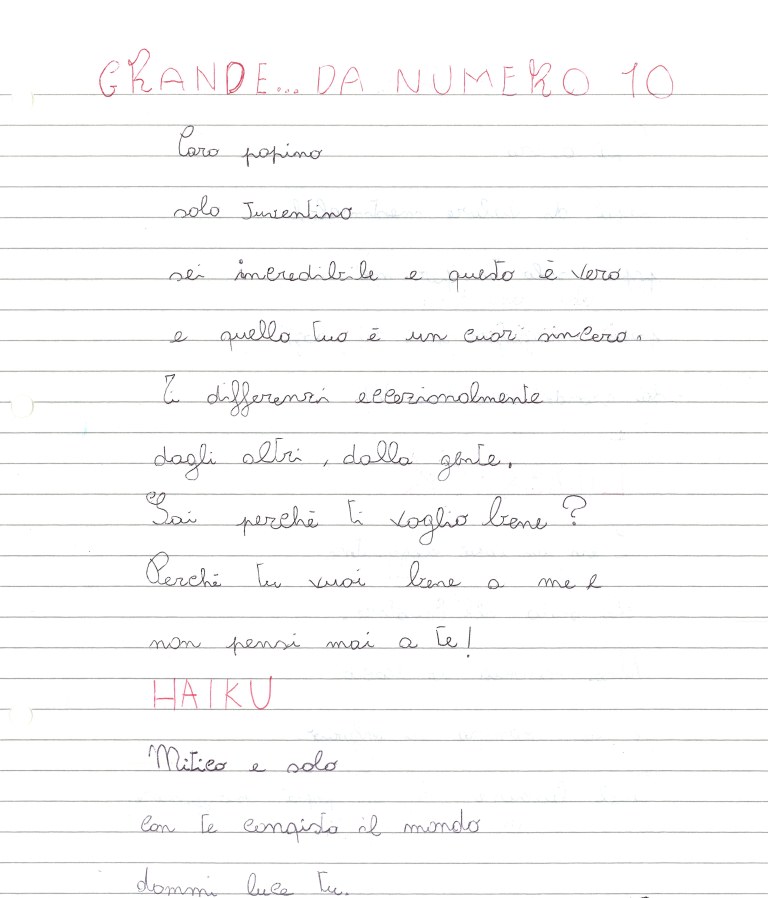 GRANDE... DA NUMERO 10
Caro papino
solo Juventino
sei incredibile e questo è vero
e quello tuo è un cuor sincero.
Ti differenzi eccezionalmente
dagli altri, dalla gente.
Sai perché ti voglio bene?
Perché tu vuoi bene a me e
non pensi mai a te!
HAIKU
Mitico e solo
con te conqisto il mondo
dammi luce tu.